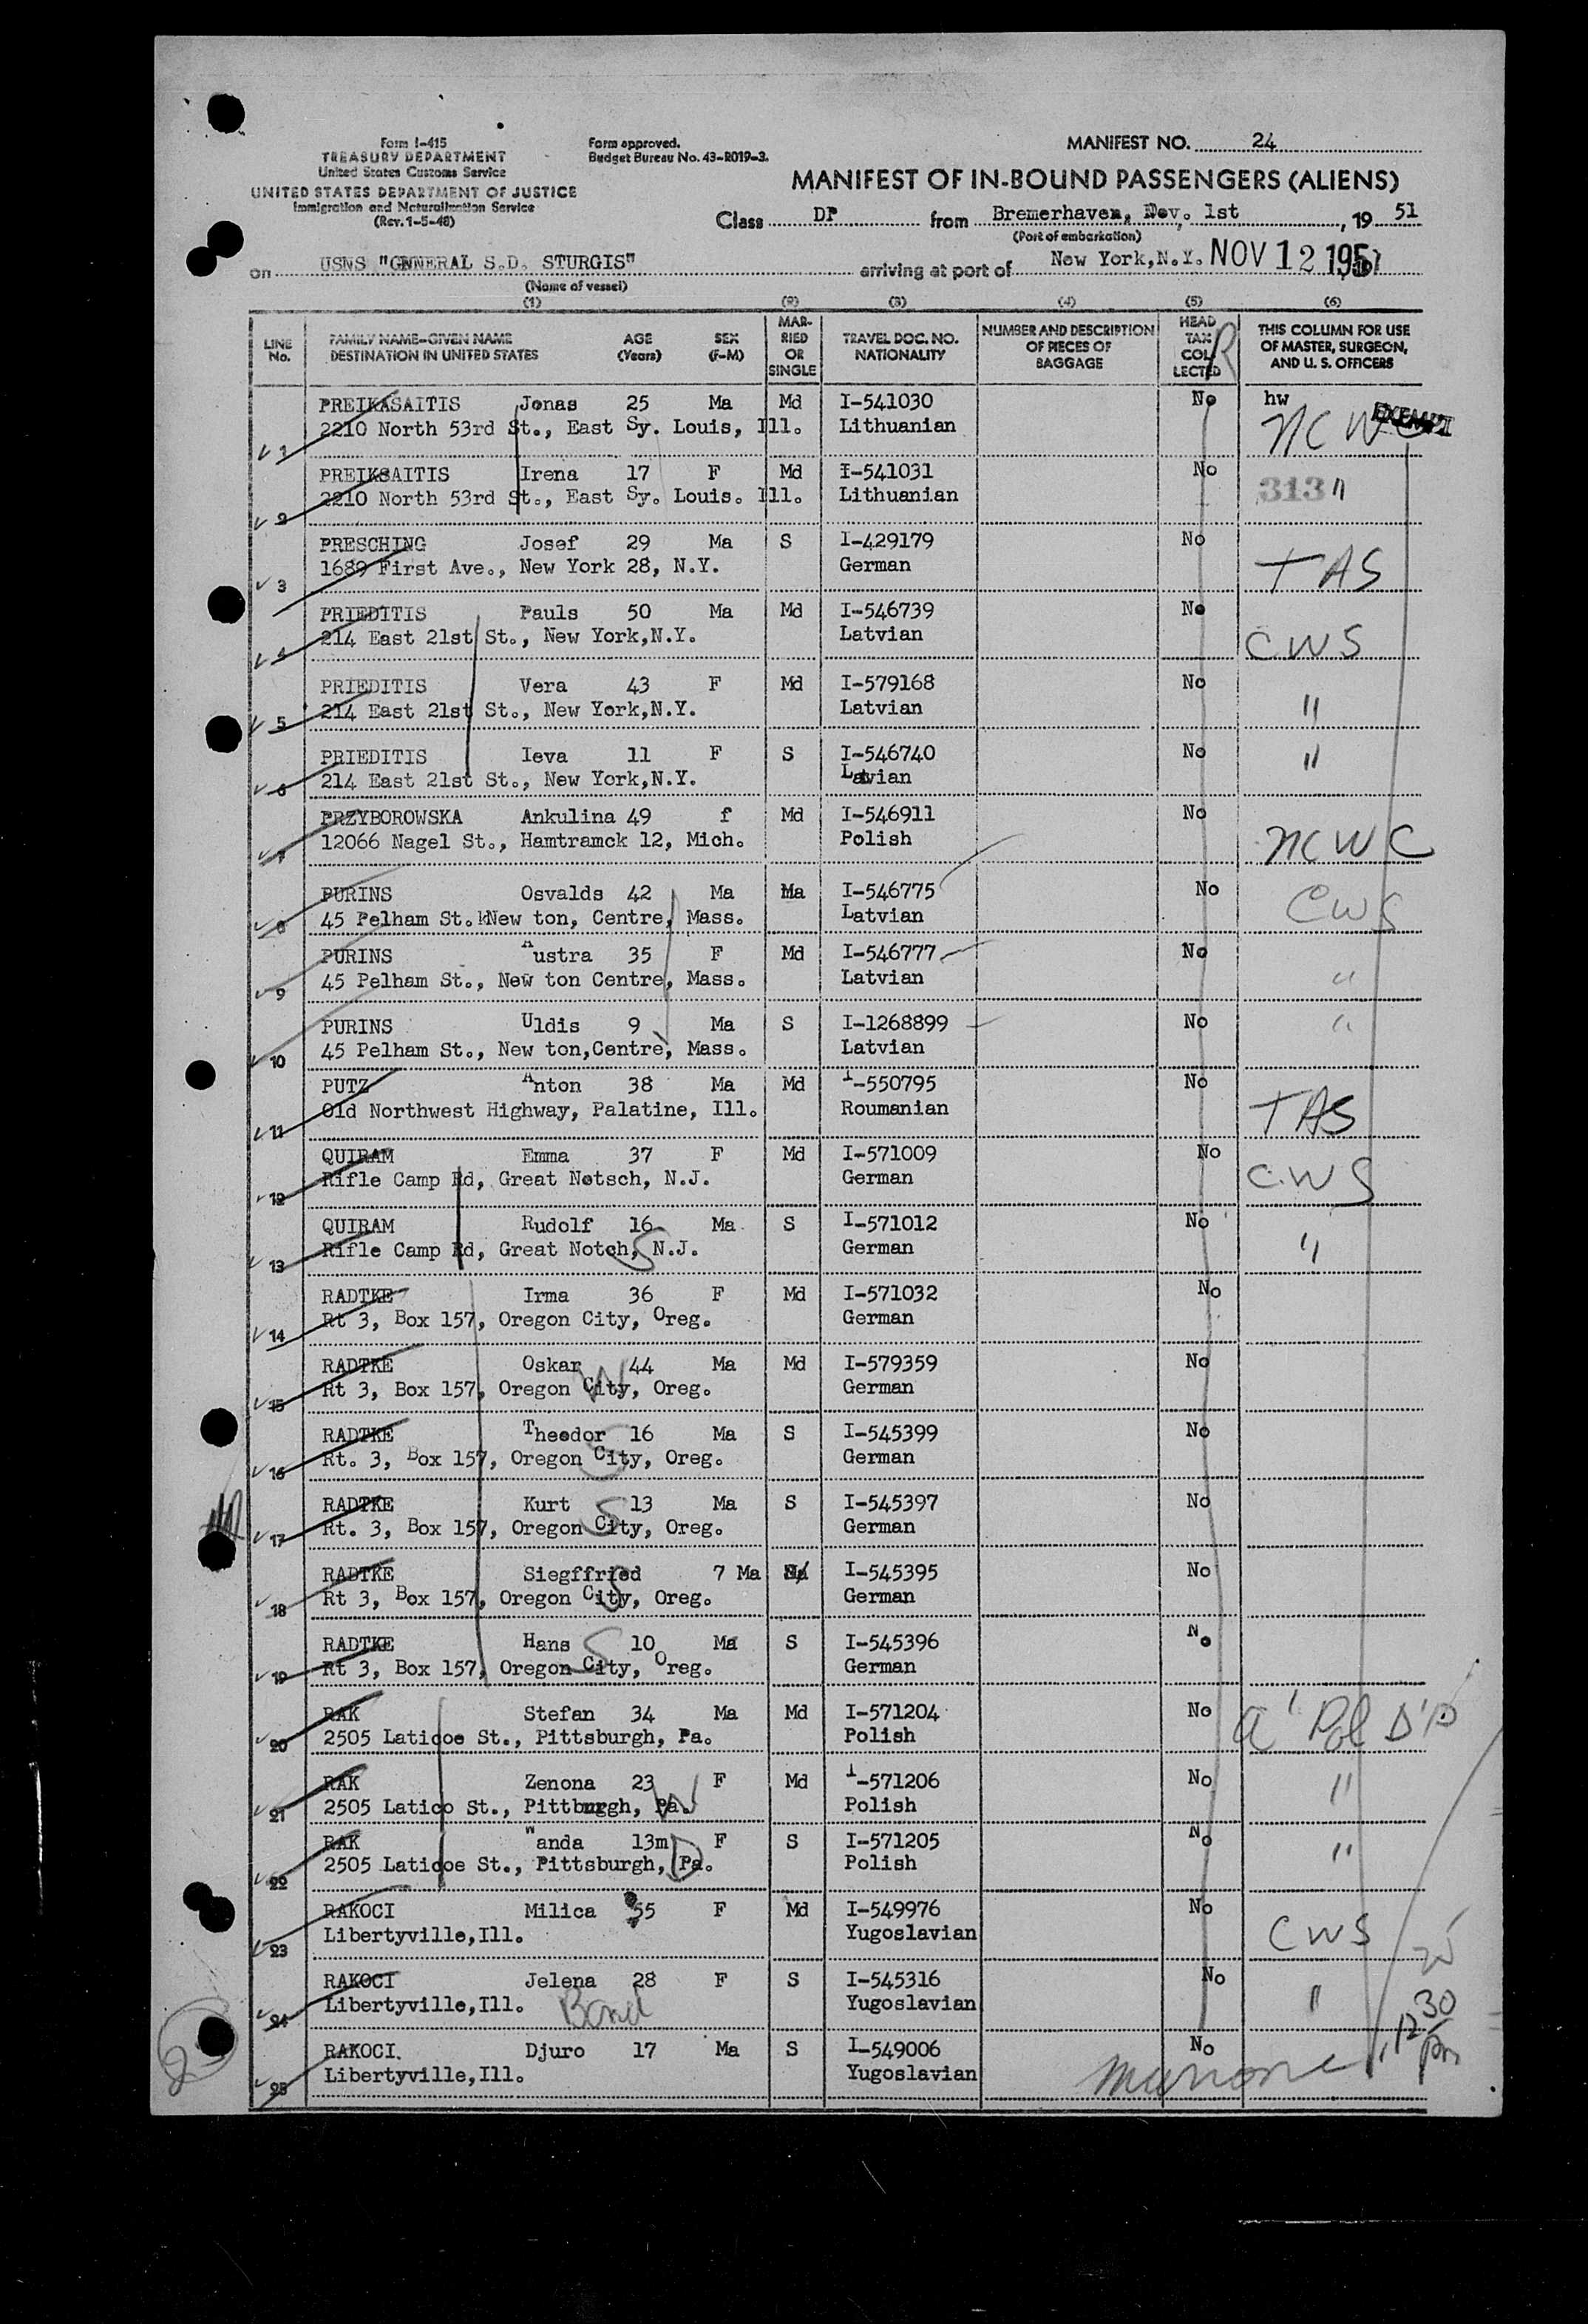 Form I-415
TREASURY DEPARTMENT
United States Customs Service
UNITED STATES DEPARTMENT OF JUSTICE
Immigration and Naturalization Service
(Rev. 1-5-48)
Form approved.
Budget Bureau No. 43-R019-3.
MANIFEST NO. 24
MANIFEST OF IN-BOUND PASSENGERS (ALIENS)
Class DP from Bremerhaven, Nov. 1st, 19 51
(Port of embarkation)
on USNS "GENERAL S.D. STURGIS" arriving at port of New York,N.Y. NOV 12 1951
(Name of vessel)
(1) (2) (3) (4) (5) (6)
LINE No. FAMILY NAME-GIVEN NAME DESTINATION IN UNITED STATES AGE (Years) SEX (F-M) MARRIED OR SINGLE TRAVEL DOC. NO. NATIONALITY NUMBER AND DESCRIPTION OF PIECES OF BAGGAGE HEAD TAX COLLECTED THIS COLUMN FOR USE OF MASTER, SURGEON, AND U. S. OFFICERS
1 PREIKASAITIS Jonas 25 Ma Md I-541030 No hw
2210 North 53rd St., East Sy. Louis, Ill. Lithuanian NCWC EXEMPT
2 PREIKSAITIS Irena 17 F Md I-541031 No
2210 North 53rd St., East Sy. Louis. Ill. Lithuanian 313 "
3 PRESCHING Josef 29 Ma S I-429179 No
1689 First Ave., New York 28, N.Y. German TAS
4 PRIEDITIS Pauls 50 Ma Md I-546739 No
214 East 21st St., New York,N.Y. Latvian CWS
5 PRIEDITIS Vera 43 F Md I-579168 No
214 East 21st St., New York,N.Y. Latvian "
6 PRIEDITIS Ieva 11 F S I-546740 No
214 East 21st St., New York,N.Y. Latvian "
7 PRZYBOROWSKA Ankulina 49 f Md I-546911 No
12066 Nagel St., Hamtramck 12, Mich. Polish NCWC
8 PURINS Osvalds 42 Ma Ma I-546775 No
45 Pelham St. New ton, Centre, Mass. Latvian CWS
9 PURINS Austra 35 F Md I-546777 No
45 Pelham St., New ton Centre, Mass. Latvian "
10 PURINS Uldis 9 Ma S I-1268899 No "
45 Pelham St., New ton,Centre, Mass. Latvian
11 PUTZ Anton 38 Ma Md I-550795 No
Old Northwest Highway, Palatine, Ill. Roumanian TAS
12 QUIRAM Emma 37 F Md I-571009 No
Rifle Camp Rd, Great Notsch, N.J. German CWS
13 QUIRAM Rudolf 16 Ma S I-571012 No
Rifle Camp Rd, Great Notch, N.J. S German "
14 RADTKE Irma 36 F Md I-571032 No
Rt 3, Box 157, Oregon City, Oreg. German
15 RADTKE Oskar 44 Ma Md I-579359 No
Rt 3, Box 157, Oregon City, Oreg. W German
16 RADTKE Theodor 16 Ma S I-545399 No
Rt. 3, Box 157, Oregon City, Oreg. S German
17 RADTKE Kurt 13 Ma S I-545397 No
Rt. 3, Box 157, Oregon City, Oreg. S German
18 RADTKE Siegffried 7 Ma I-545395 No
Rt 3, Box 157, Oregon City, Oreg. S German
19 RADTKE Hans 10 Ma S I-545396 No
Rt 3, Box 157, Oregon City, Oreg. S German
20 RAK Stefan 34 Ma Md I-571204 No
2505 Laticoe St., Pittsburgh, Pa. Polish
21 RAK Zenona 23 F Md I-571206 No
2505 Latico St., Pittburgh, Pa. W Polish "
22 RAK Wanda 13m F S I-571205 No
2505 Laticoe St., Pittsburgh, Pa. D Polish "
23 RAKOCI Milica 55 F Md I-549976 No
Libertyville,Ill. Yugoslavian CWS
24 RAKOCI Jelena 28 F S I-545316 No
Libertyville,Ill. Yugoslavian "
25 RAKOCI. Djuro 17 Ma S I-549006 No
Libertyville,Ill. Yugoslavian
12 30 pm